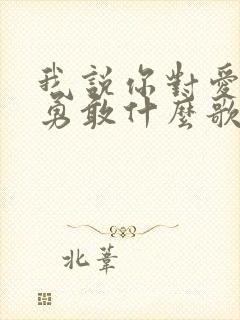 我說你對愛
勇敢什麼歌
北葦